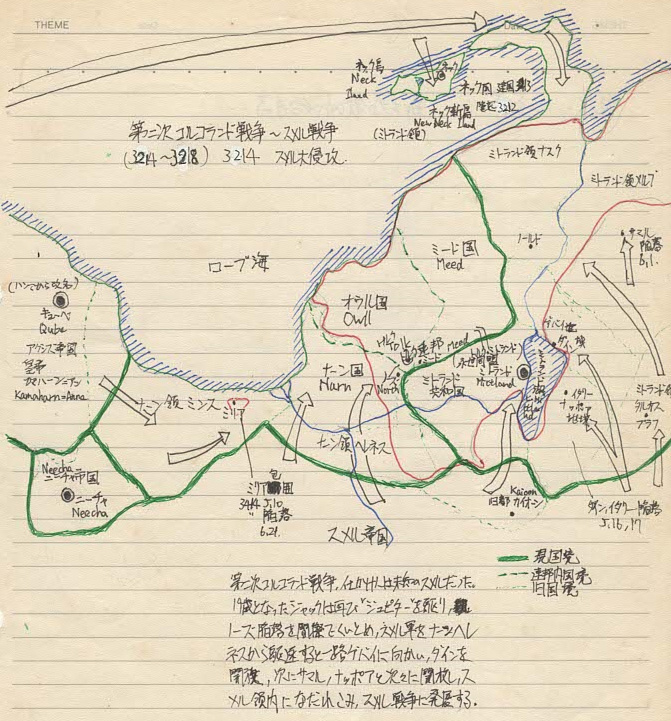 THEME
Date
ネック島
Neck
Iland
ネック
ネック国 建国
陥落 3212
ネック新島
New Neck Iland
(ミトランド領)
第二次コルコランド戦争〜スメル戦争
(3214〜3218) 3214 スメル大侵攻.
ミトランド領ナスク
ミトランド領メルブ
ローブ海
ミード国
Meed
ノールド
サマル
陥落
6,1.
キューベ
Qube
オウル国
Owll
帝国
皇帝
カマハーン=アンナ
Kamaharn=Anna
ナーン国
Narn
ミード
Meed
North
ミトランド
共和国
ミトランド
Mtotland
ナーン領 ミンス
ミリア
イタリー
ナッポア
ナーン領ヘネス
プラフ
Neecha
ニーチャ帝国
ニーチャ
Neecha
ミリア包囲
3214 5.10
陥落
6.21.
スメル帝国
旧都
Kaioon
カイオーン
ダイン,イタリー陥落
5.16,17
現国境
連邦内国境
旧国境
第二次コルコランド戦争,仕かけ人は未のスメルだった.
19歳となったジャックは再び"ジュピター"を駆り,
ノース陥落を間際でくいとめ,スメル軍をナーンヘレ
ネスから駆逐すると一路ゲバイに向かい,ダインを
開放,次にサマル,ナッポアと次々に開放し,ス
メル領内になだれこみ,スメル戦争に発展する.